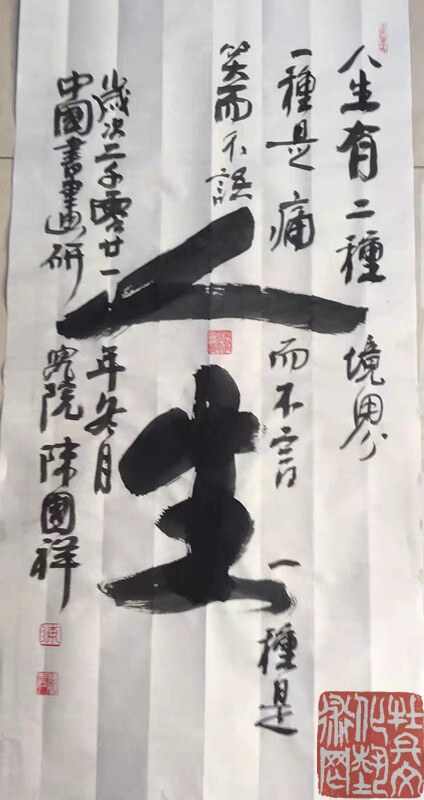 人生有二種境界
一種是痛而不言一種是
笑而不語
人生
歲次二千零廿一年冬月
中國書畫研究院陳國祥